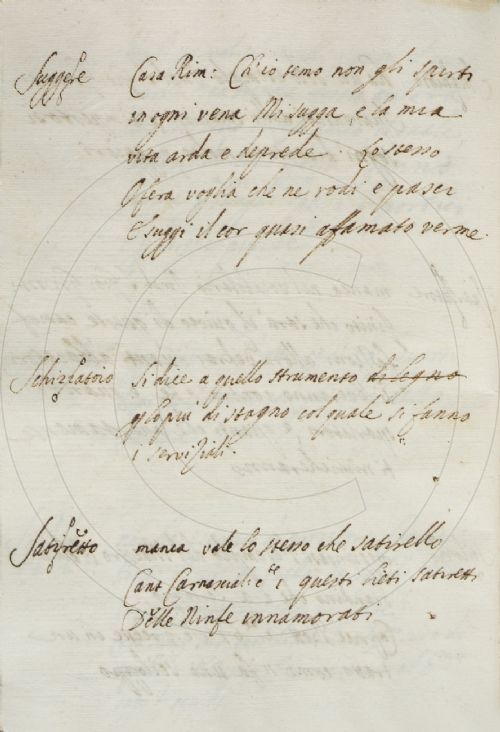 Suggere Casa Rim: Ch'io temo non gli spirti
in ogni vena Mi sugga, e la mia
vita arda e deprede. Lo stesso
O fera voglia che ne rodi e pasci
E suggi il cor quasi affamato verme.
Schizzatoio si dice a quello strumento di legno
p lo piu di stagno col quale si fanno
i serviziali.
Satiretto manca vale lo stesso che satirello
Cant Carnascial: i questi lieti satiretti
Delle Ninfe innamorati